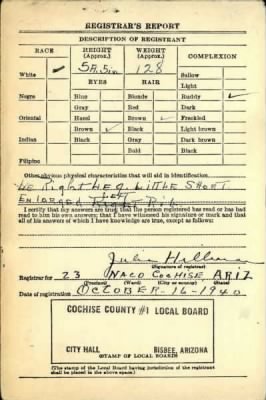 REGISTRAR'S REPORT
DESCRIPTION OF REGISTRANT
RACE HEIGHT (Approx.) WEIGHT (Approx.) COMPLEXION
White ✓ 5ft. 5in 128 Sallow
EYES HAIR Light
Negro Blue Blonde Ruddy ✓
Gray Red Dark
Oriental Hazel Brown ✓ Freckled
Brown ✓ Black Light brown
Indian Black Gray Dark brown
Bald Black
Filipino
Other obvious physical characteristics that will aid in identification
Right LEG LITTLE SHORT
LEFT
ENLARGED Right Rib
I certify that my answers are true; that the person registered has read or has had
read to him his own answers; that I have witnessed his signature or mark and that
all of his answers of which I have knowledge are true, except as follows:
(Signature of registrar)
Registrar for 23 NACO COCHISE ARIZ
(Precinct) (Ward) (City or county) (State)
Date of registration OCTOBER-16-1940
COCHISE COUNTY #1 LOCAL BOARD
CITY HALL, BISBEE, ARIZONA
(STAMP OF LOCAL BOARD)
(The stamp of the Local Board having jurisdiction of the registrant
shall be placed in the above space.)